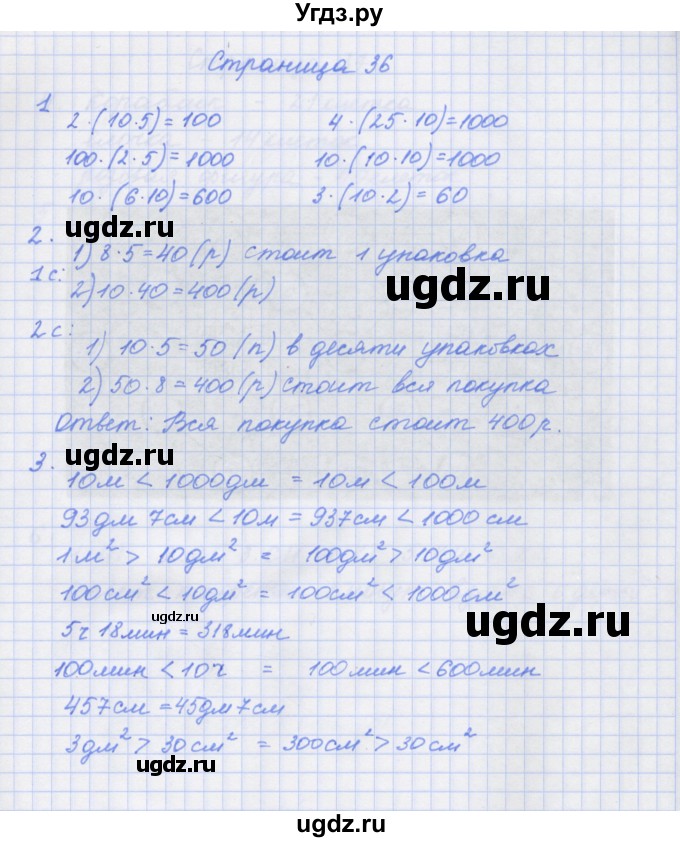 Угдз.ру
Страница 36
1
2·(10·5)=100 4·(25·10)=1000
100·(2·5)=1000 10·(10·10)=1000
10·(6·10)=600 3·(10·2)=60
ugdz.ru
2.
1) 8·5=40(р) стоит 1 упаковка
1с:
2) 10·40=400(р)
ugdz.ru
2с:
1) 10·5=50(п) в десяти упаковках
2) 50·8=400(р) стоит вся покупка
Ответ: Вся покупка стоит 400р.
ugdz.ru
3.
10м < 1000дм = 10м < 100м
93дм 7см < 10м = 937см < 1000см
1м² > 10дм² = 100дм² > 10дм²
100см² < 10дм² = 100см² < 1000см²
ugdz.ru
ugdz.ru
5ч 18мин = 318мин
100мин < 10ч = 100мин < 600мин
457см = 45дм 7см
3дм² > 30см² = 300см² > 30см²
ugdz.ru
ugdz.ru